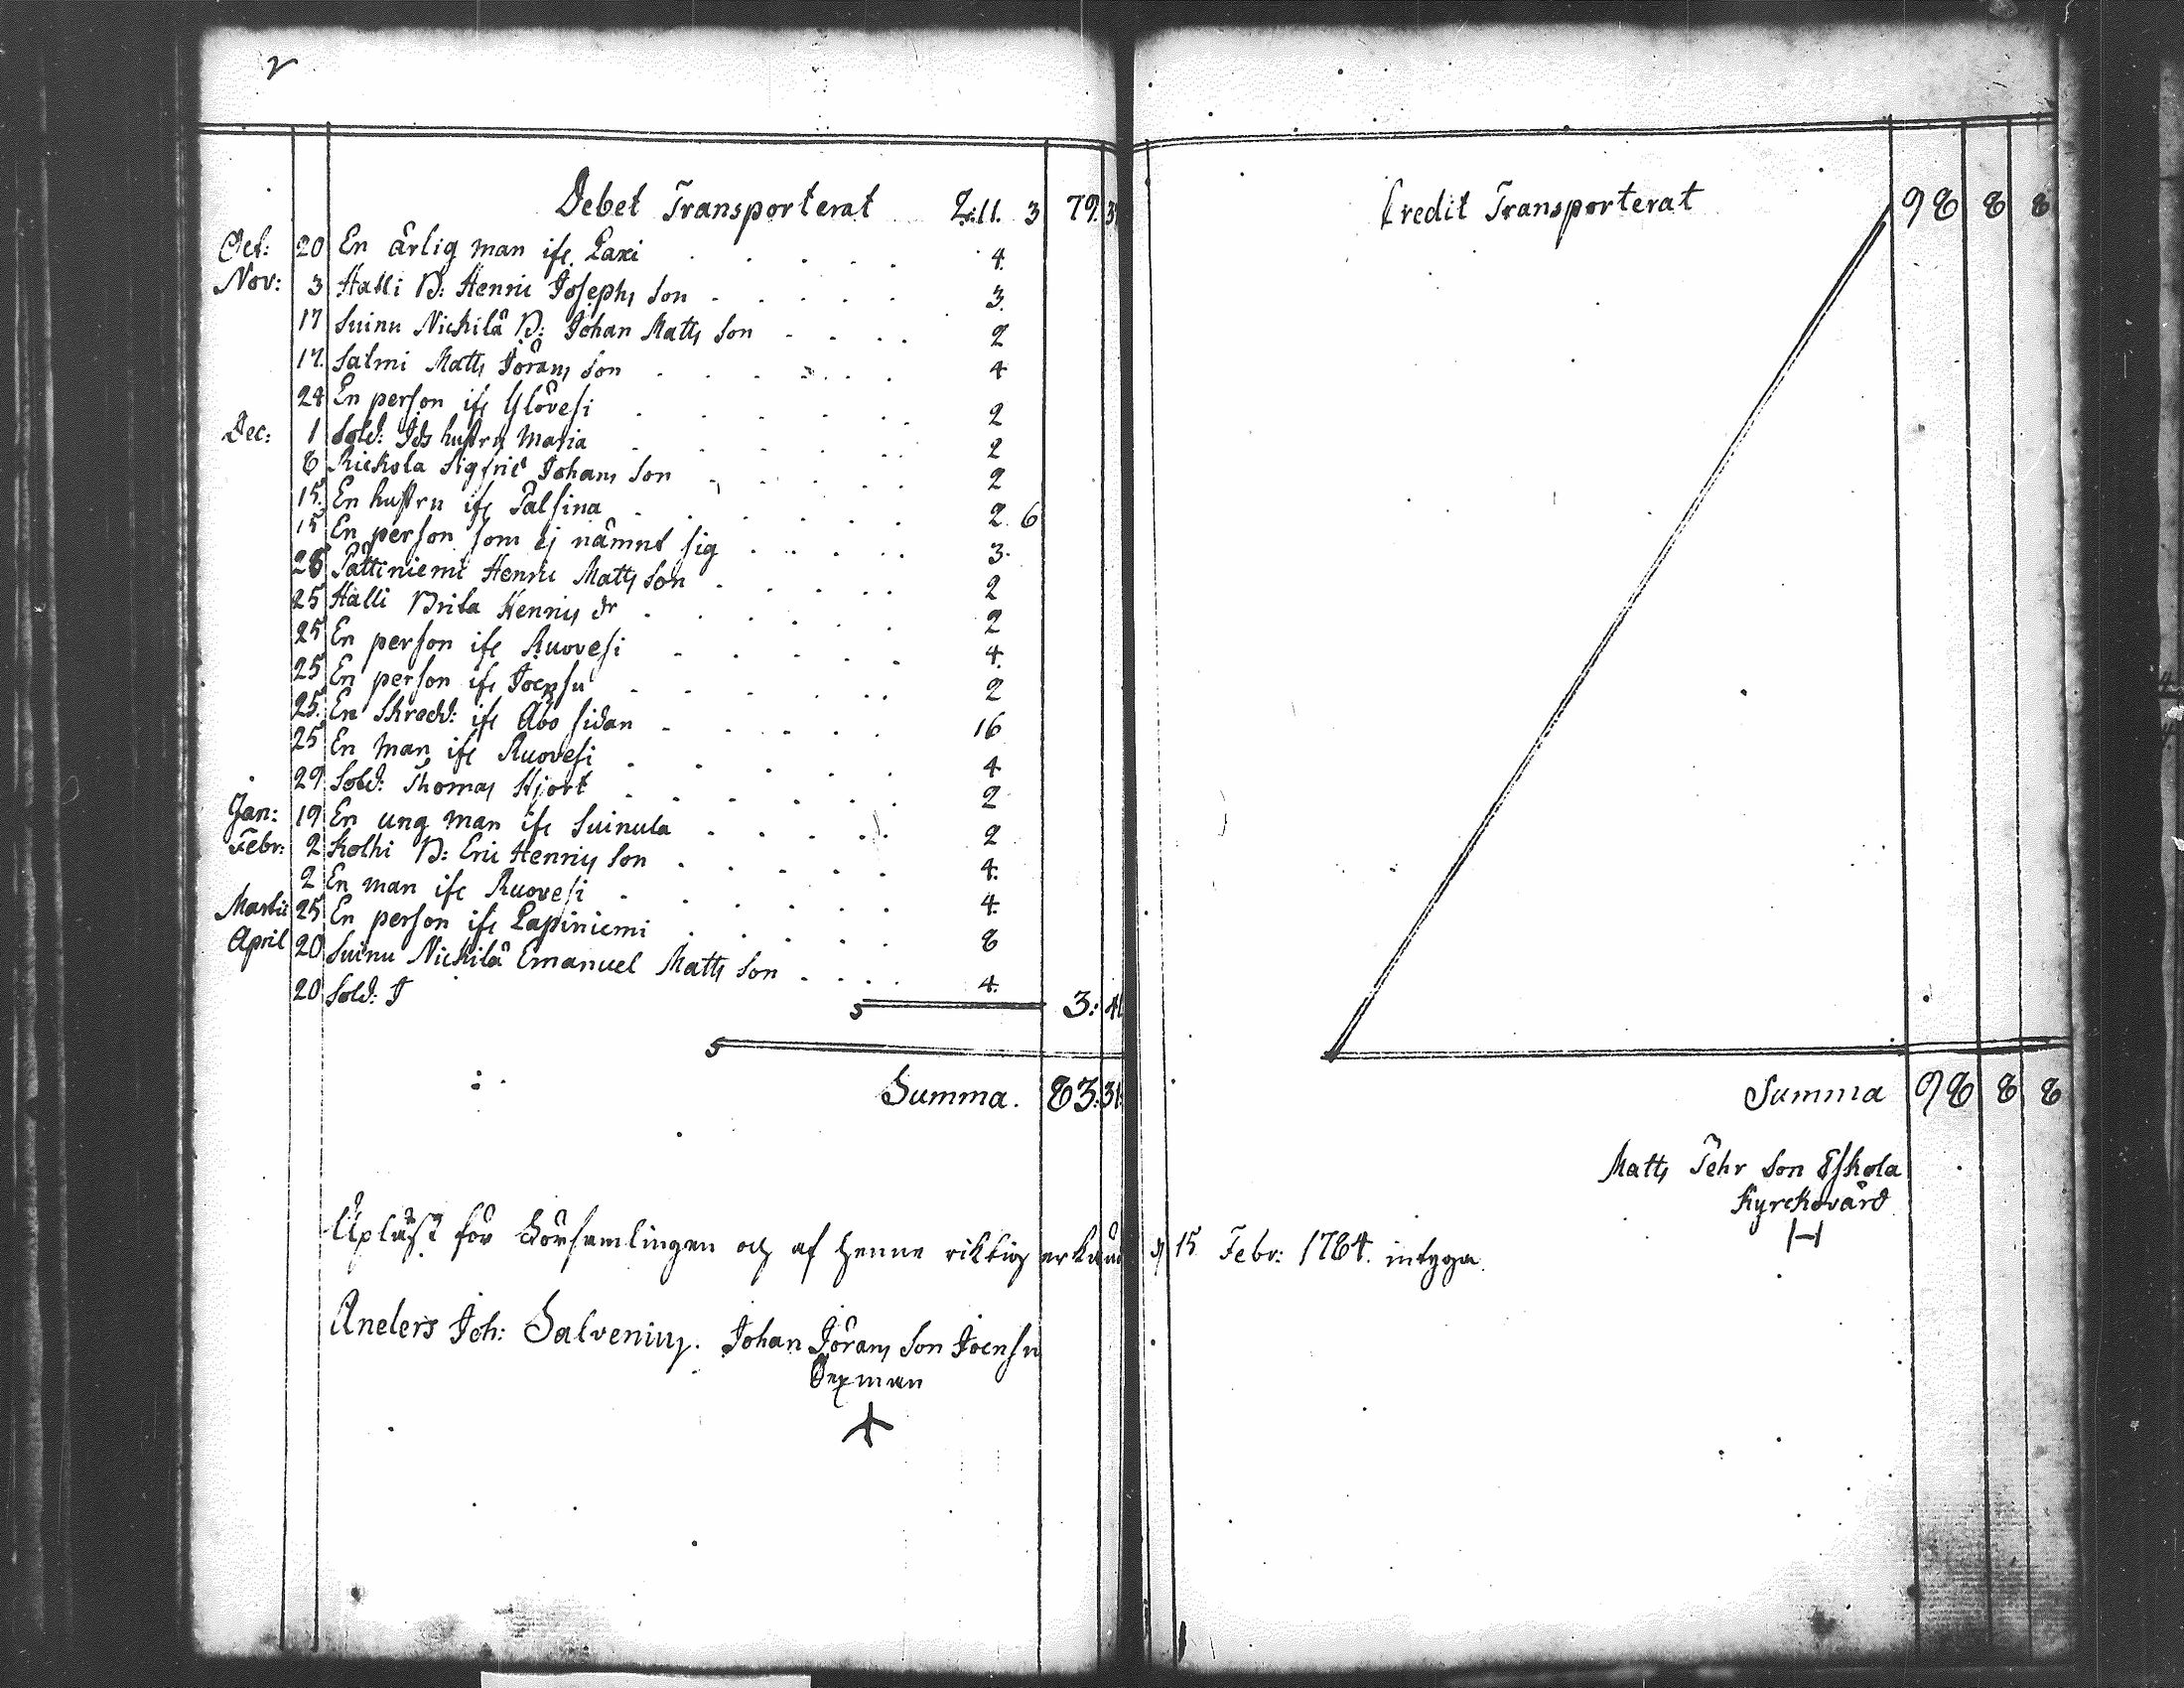 2
Debet Transporterat 2:11. 3 79. 3
Oct: 20 En ärlig man ifr. Laxi 4.
Nov: 3 Halli B: Henric Josephs son 3.
17 Suinu Nickilä B: Johan Matts son 2
17. Salmi Matts Jörans son 4
24 En person ifr Ylövesi 2
Dec: 1 Sold: Ids hustru Maria 2
8 Rickola Sigfrid Johans son 2
15. En hustru ifr Talsina 2. 6
15 En person som ej nämnt sig 3.
26 Pättiniemi Henric Matts son 2
25 Halli Brita Henrics dr 2
25 En person ifr Ruovesi 4.
25 En person ifr Joensu 2
25. En Skredd: ifr Åbo sidan 16
25 En man ifr Ruovesi 4
29 Sold: Thomas Hjort 2
Jan: 19 En ung man ifr Suinula 2
Febr: 2 Kolhi B: Eric Henrics son 4.
2 En man ifr Ruovesi 4.
Martii 25 En person ifr Lapiniemi 8
April 20 Suinu Nickilä Emanuel Matts son 4.
20 Sold: I
3: 41
Summa. 83: 31.
Upläst för Församlingen och af henne riktig erkänd d 15 Febr: 1784. intyga.
Anders Joh: Salvenius. Johan Jörans son Joensu
Sexman
Credit Transporterat 98 8 8
Summa 98 8 8
Matts Pehr son Eskola
Kyrckovärd
H